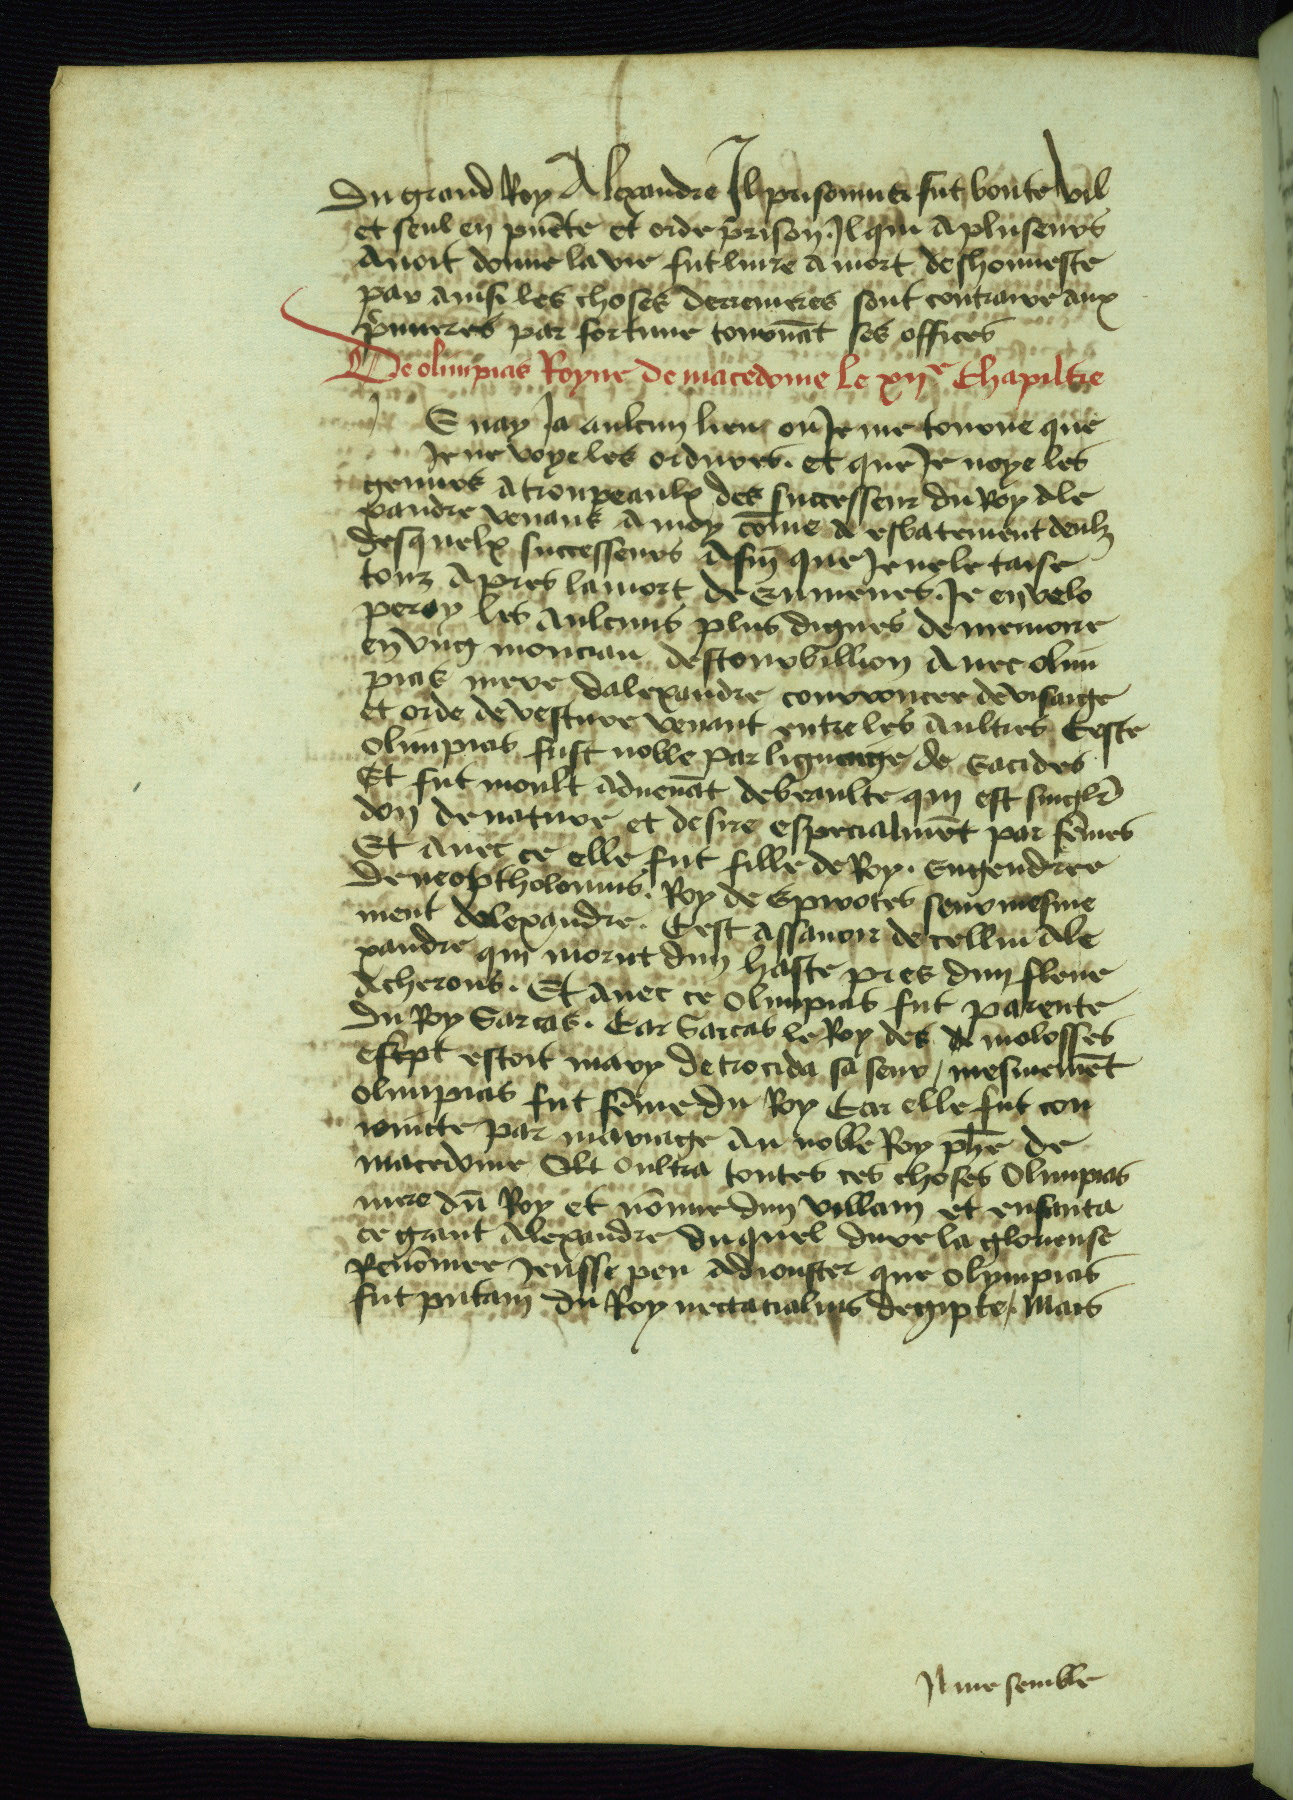 Du grand Roy Alexandre Il prisonnier fut boute vil
et seul en puēte et orde prison. Il qui a pluseurs
avoit donne la vie fut livre a mort deshonneste
par ainsi les choses derrenieres sont contraire aux
p̄mieres par fortune tournāt ses offices
De olimpias Royne de macedoine le xiie Chapiltre
E nay Ja aulcun lieu ou Je me tourne que
Je ne voye les ordures. et que Je noye les
gemirs a troupeaulx des successeur du Roy Ale
xandre venans a moy cōme a esbatement deulz
desq̄uelx successeurs Afin que Je ne le taise
touz Apres la mort de Eumenes. Je envelo
peray les Aulcuns plus dignes de memoire
en ung monciau destourbillion Avec olim
pias mere dalexandre courroucee de visaige
et orde de vesture venant entre les aultres Ceste
olimpias fust noble par lignaige de Eacides
Et fut moult advenāt de beaulte qui est singl'r
don de nature et desire especialmēt par fēmes
Et avec ce elle fut fille de Roy. Engendree
de neoptholomus. Roy de Epirotes seur mesme
ment dalexandre. Cest assavoir de cellui Ale
xandre qui morut dun haste pres dun fleuve
Acherons. Et avec ce olimpias fut parente
du Roy Sarcas. Car Sarcas le Roy des de molosses
estoit mary de trocida sa seur / mesmemēt
olimpias fut fēme du Roy Car elle fut con
ioincte par mariage au noble Roy ph̄e de
macedoine Et oultra toutes ces choses Olimpias
mere dū Roy et nōmee dun villain et enfanta
ce grant Alexandre duquel dure la glorieuse
Renōmee Jeusse peu adiouster que olympias
fut putain du Roy nectatialius degipte / Mais
Il me semble